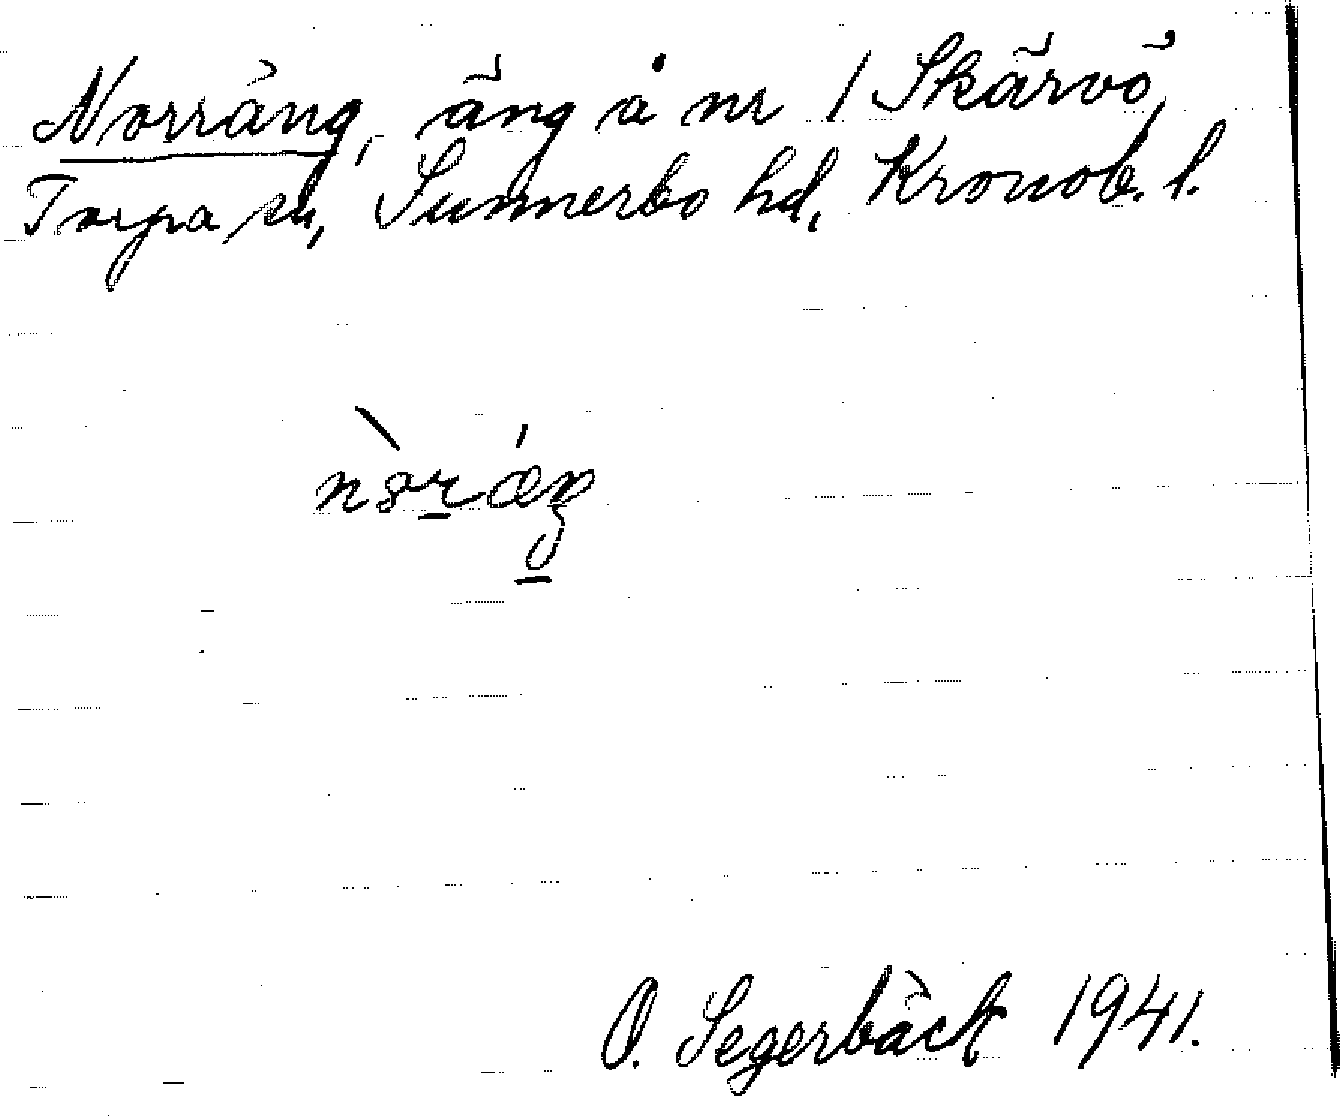 Norräng, äng å nr 1 Skärvö,
Torpa sn, Sunnerbo hd, Kronob. l.
O. Segerbäck 1941.